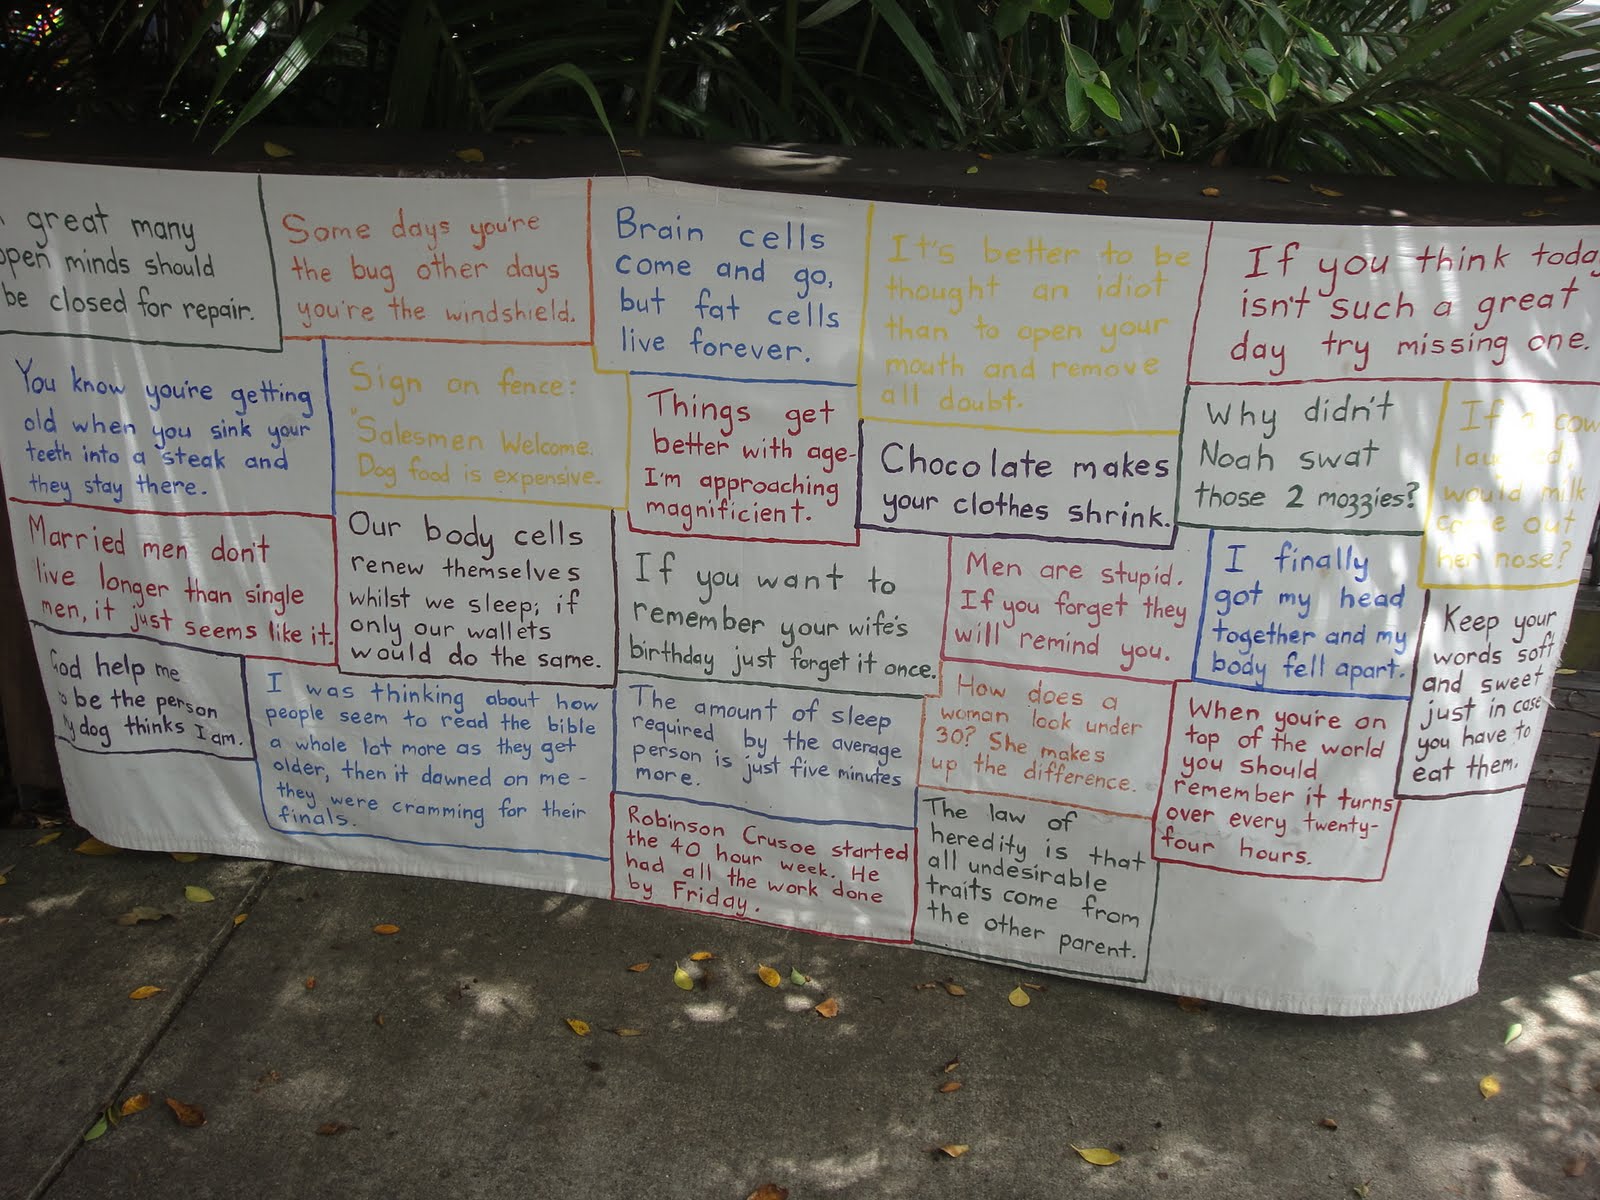 great many
open minds should
be closed for repair.
Some days you're
the bug other days
you're the windshield.
Brain cells
come and go,
but fat cells
live forever.
It's better to be
thought an idiot
than to open your
mouth and remove
all doubt.
If you think today
isn't such a great
day try missing one.
You know you're getting
old when you sink your
teeth into a steak and
they stay there.
Sign on fence:
"Salesmen Welcome.
Dog food is expensive.
Things get
better with age-
I'm approaching
magnificient.
Chocolate makes
your clothes shrink.
Why didn't
Noah swat
those 2 mozzies?
If a cow
laughed,
would milk
come out
her nose?
Married men don't
live longer than single
men, it just seems like it.
Our body cells
renew themselves
whilst we sleep; if
only our wallets
would do the same.
If you want to
remember your wife's
birthday just forget it once.
Men are stupid.
If you forget they
will remind you.
I finally
got my head
together and my
body fell apart.
Keep your
words soft
and sweet
just in case
you have to
eat them.
God help me
to be the person
my dog thinks I am.
I was thinking about how
people seem to read the bible
a whole lot more as they get
older, then it dawned on me -
they were cramming for their
finals.
The amount of sleep
required by the average
person is just five minutes
more.
How does a
woman look under
30? She makes
up the difference.
When you're on
top of the world
you should
remember it turns
over every twenty-
four hours.
Robinson Crusoe started
the 40 hour week. He
had all the work done
by Friday.
The law of
heredity is that
all undesirable
traits come from
the other parent.